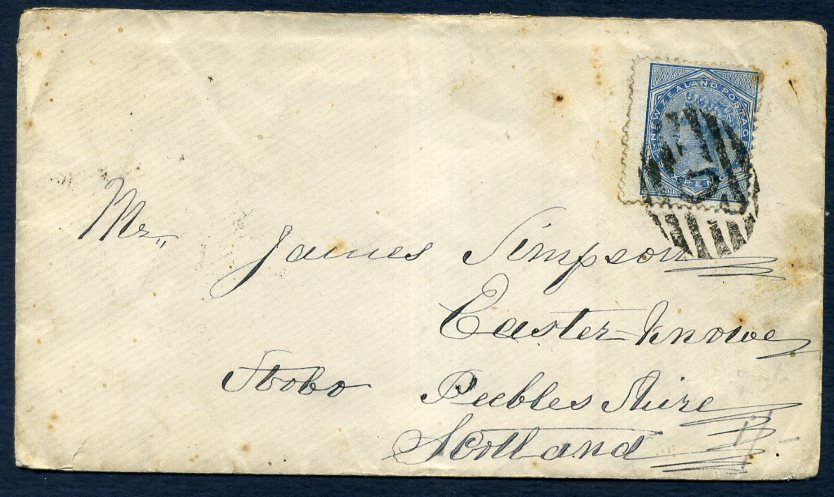 NEW ZEALAND POSTAGE
Mr,, James Simpson
Easter Knowe
Stobo Peebles Shire
Scotland